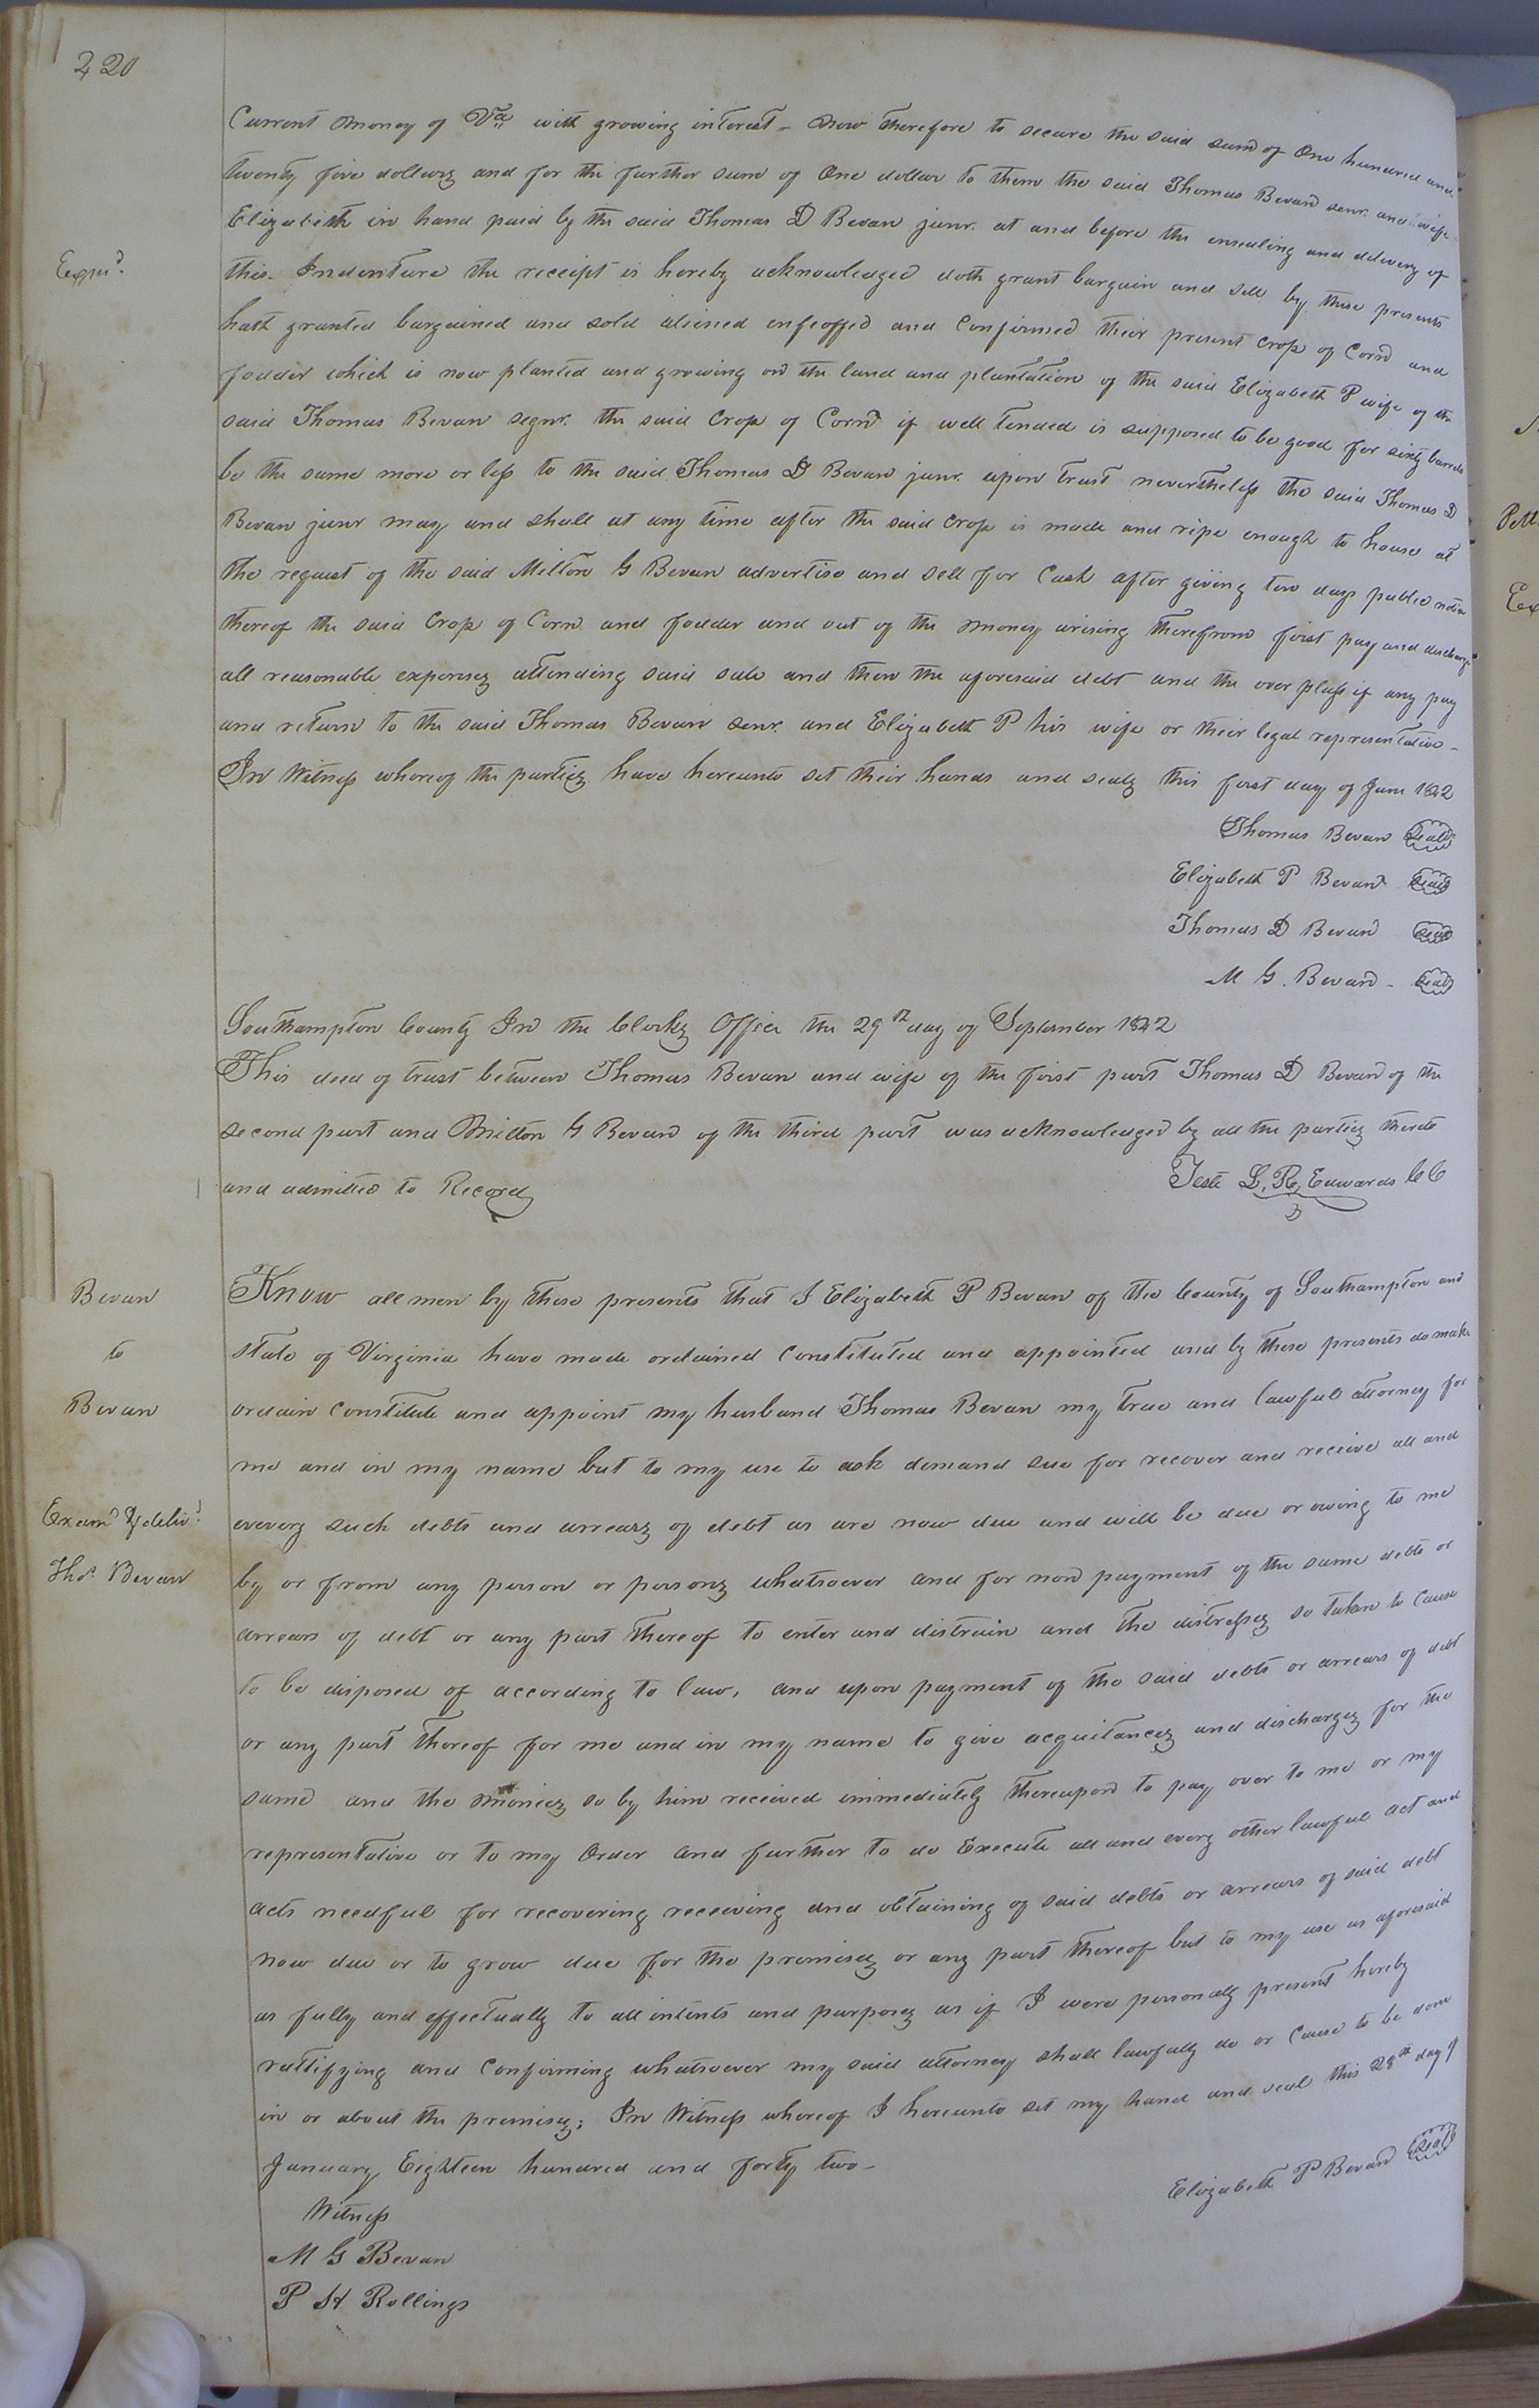 220
Current money of Va with growing interest - Now therefore to secure the said sum of One hundred and
twenty five dollars and for the further sum of One dollar to them the said Thomas Bevan senr. and wife
Elizabeth in hand paid by the said Thomas D Bevan junr. at and before the ensealing and delivery of
this Indenture the receipt is hereby acknowledged doth grant bargain and sell by these presents
hath granted bargained and sold aliened enfeoffed and Confirmed their present crop of Corn and
fodder which is now planted and growing on the land and plantation of the said Elizabeth P wife of the
said Thomas Bevan segnr. the said Crop of Corn if well tended is supposed to be good for sixty barrels
be the same more or less to the said Thomas D Bevan junr. upon trust nevertheless the said Thomas D
Bevan junr may and shall at any time after the said crop is made and ripe enough to house at
the request of the said Milton G Bevan advertise and sell for Cash after giving ten days public notice
thereof the said Crop of Corn and fodder and out of the money arising therefrom first pay and discharge
all reasonable expenses attending said sale and then the aforesaid debt and the over pluss if any pay
and return to the said Thomas Bevan senr. and Elizabeth P his wife or their legal representative -
In Witness whereof the parties have hereunto set their hands and seals this first day of June 1842
Thomas Bevan Seal
Elizabeth P Bevan Seal
Thomas D Bevan Seal
M G. Bevan - Seal
Southampton County In the Clerks Office the 29th day of September 1842
This deed of trust between Thomas Bevan and wife of the first part Thomas D Bevan of the
second part and Milton G Bevan of the third part was acknowledged by all the parties thereto
and admitted to Record
Teste L. R. Edwards CC
Bevan
to
Bevan
Examd & delivd.
Thos. Bevan
Know all men by these presents that I Elizabeth P Bevan of the County of Southampton and
State of Virginia have made ordained Constituted and appointed and by these presents do make
ordain Constitute and appoint my husband Thomas Bevan my true and lawful attorney for
me and in my name but to my use to ask demand sue for recover and receive all and
every such debts and arrears of debt as are now due and will be due or owing to me
by or from any person or persons whatsoever and for non payment of the same debts or
arrears of debt or any part thereof to enter and distrain and the distresses so taken to Cause
to be disposed of according to law, and upon payment of the said debts or arrears of debt
or any part thereof for me and in my name to give acquitances and discharges for the
same and the monies so by him received immediately thereupon to pay over to me or my
representative or to my Order and further to do Execute all and every other lawful act and
acts needful for recovering receiving and obtaining of said debts or arrears of said debt
now due or to grow due for the premises or any part thereof but to my use as aforesaid
as fully and effectually to all intents and purposes as if I were personally present hereby
rattifying and Confirming whatsoever my said attorney shall lawfully do or Cause to be done
in or about the premises; In Witness whereof I hereunto set my hand and seal this 28th day of
January Eighteen hundred and forty two -
Elizabeth P Bevan Seal
Witness
M G Bevan
P H Rollings